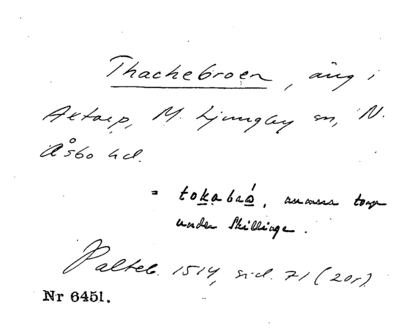 Thachebroen, äng i
Axtorp, M. Ljungby sn, N.
Åsbo hd.
= tokabro, annars torp
under Skillinge.
Palteb. 1514, sid. 71 (20r)
Nr 6451.